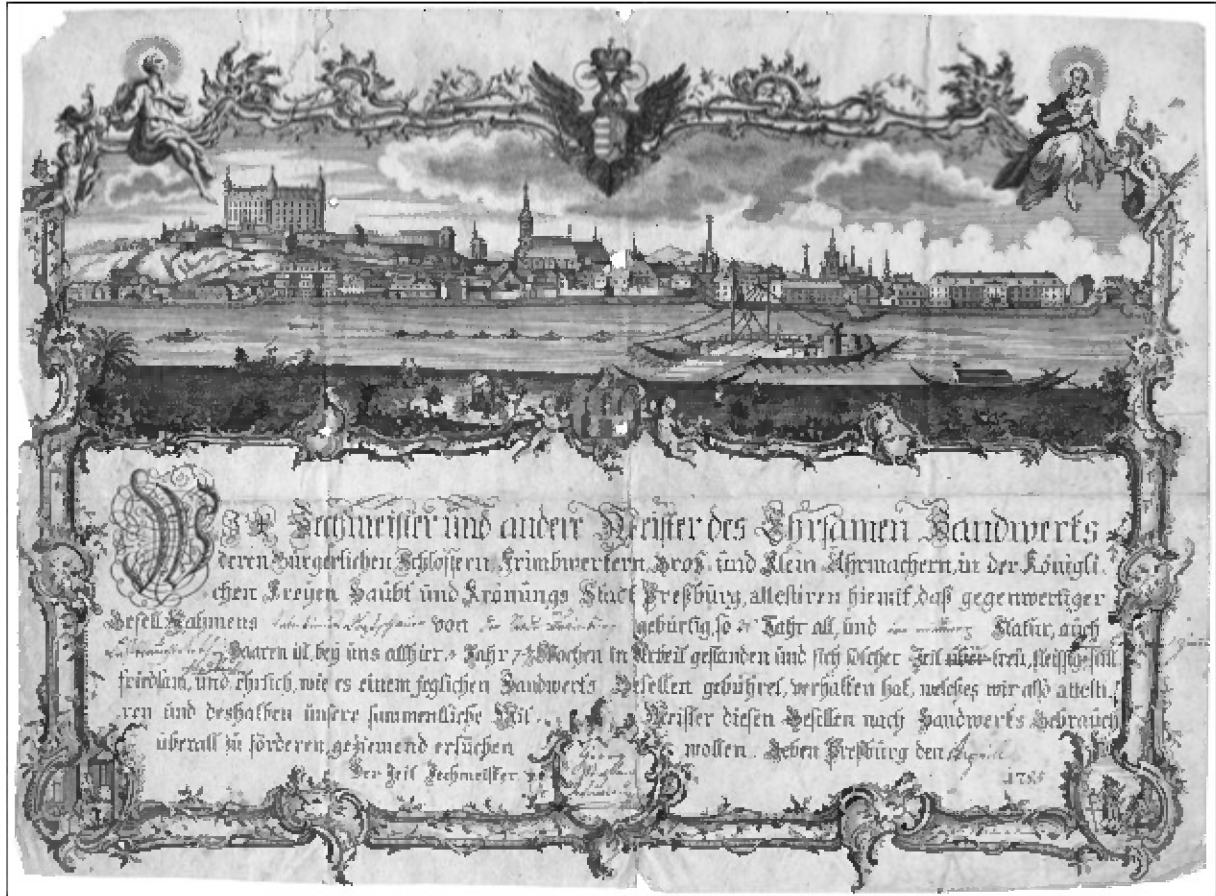 Wir Zechmeister und andere Meister des Ehrsamen Handwerks
deren Bürgerlichen Schlossern, Groß und Klein Uhrmachern, in der Königli
chen Freyen Haubt und Krönungs Stadt Preßburg, attestiren hiemit, daß gegenwertiger
Gesell Nahmens von gebürtig, so Jahr alt, und Statur, auch
Haaren ist, bey uns allhier Jahr Wochen in Arbeit gestanden und sich solcher Zeit über treu, fleissig
friedsam, und ehrlich, wie es einem jeglichen Handwerks Gesellen gebühret, verhalten hat, welches wir also attesti
ren und deshalben unsere sammentliche Mit Meister diesen Gesellen nach Handwerks Gebrauch
überall zu förderen, geziemend ersuchen wollen. Geben Preßburg den
Der Zeit Zechmeister 178